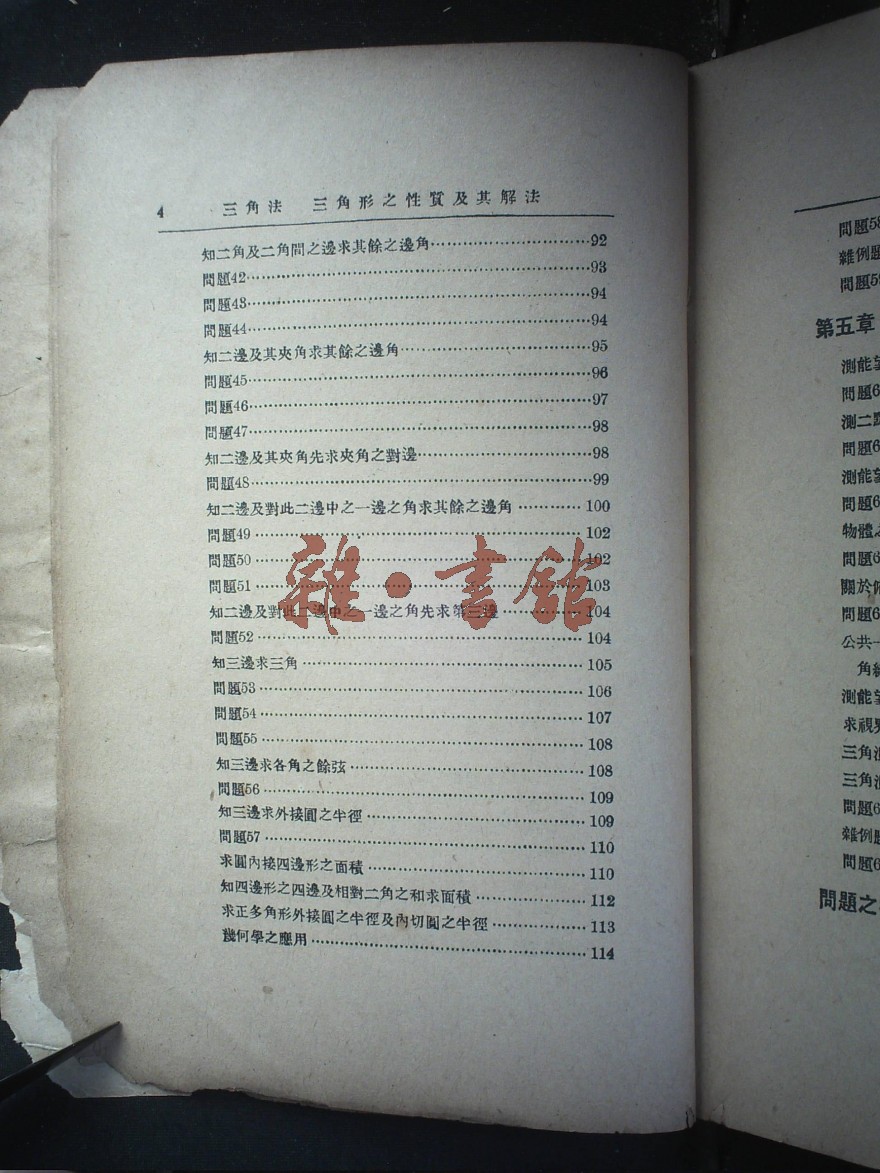 4 三角法 三角形之性質及其解法
知二角及二角間之邊求其餘之邊角……92
問題42……93
問題43……94
問題44……94
知二邊及其夾角求其餘之邊角……95
問題45……96
問題46……97
問題47……98
知二邊及其夾角先求夾角之對邊……98
問題48……99
知二邊及對此二邊中之一邊之角求其餘之邊角……100
問題49……102
問題50……102
問題51……103
知二邊及對此二邊中之一邊之角先求第三邊……104
問題52……104
知三邊求三角……105
問題53……106
問題54……107
問題55……108
知三邊求各角之餘弦……108
問題56……109
知三邊求外接圓之半徑……109
問題57……110
求圓內接四邊形之面積……110
知四邊形之四邊及相對二角之和求面積……112
求正多角形外接圓之半徑及內切圓之半徑……113
幾何學之應用……114
雜·書館
問題58
雜例題
問題59
第五章
測能
問題6
測二
問題6
測能
問題6
物體
問題6
關於
問題6
公共一
角
測能
求視
三角
三角
問題6
雜例
問題6
問題之